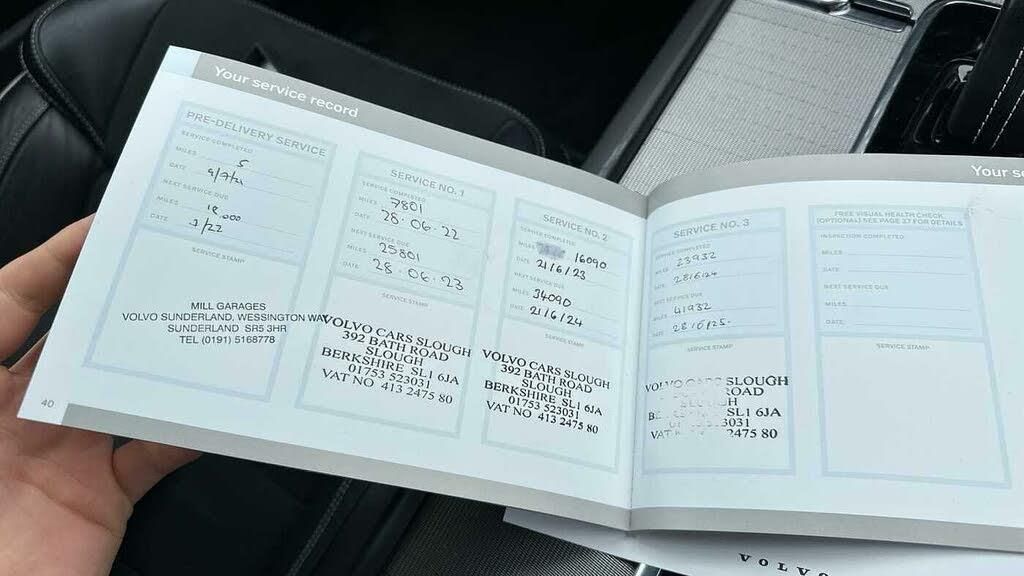 Your service record
PRE-DELIVERY SERVICE
SERVICE COMPLETED
MILES 5
DATE 9/7/21
NEXT SERVICE DUE
MILES 18,000
DATE 7/22
SERVICE STAMP
MILL GARAGES
VOLVO SUNDERLAND, WESSINGTON WAY
SUNDERLAND SR5 3HR
TEL (0191) 5168778
40
SERVICE NO. 1
SERVICE COMPLETED
MILES 7801
DATE 28.06.22
NEXT SERVICE DUE
MILES 25801
DATE 28.06.23
SERVICE STAMP
VOLVO CARS SLOUGH
392 BATH ROAD
SLOUGH
BERKSHIRE SL1 6JA
01753 523031
VAT NO 413 2475 80
SERVICE NO. 2
SERVICE COMPLETED
MILES 16090
DATE 21/6/23
NEXT SERVICE DUE
MILES 34090
DATE 21/6/24
SERVICE STAMP
VOLVO CARS SLOUGH
392 BATH ROAD
SLOUGH
BERKSHIRE SL1 6JA
01753 523031
VAT NO 413 2475 80
Your se
SERVICE NO. 3
SERVICE COMPLETED
MILES 23932
DATE 28/6/24
NEXT SERVICE DUE
MILES 41932
DATE 28/6/25.
SERVICE STAMP
VOLVO CARS SLOUGH
ROAD
SL1 6JA
3031
VAT 2475 80
FREE VISUAL HEALTH CHECK
(OPTIONAL) SEE PAGE 37 FOR DETAILS
INSPECTION COMPLETED
MILES
DATE
NEXT SERVICE DUE
MILES
DATE
SERVICE STAMP
VOLVO